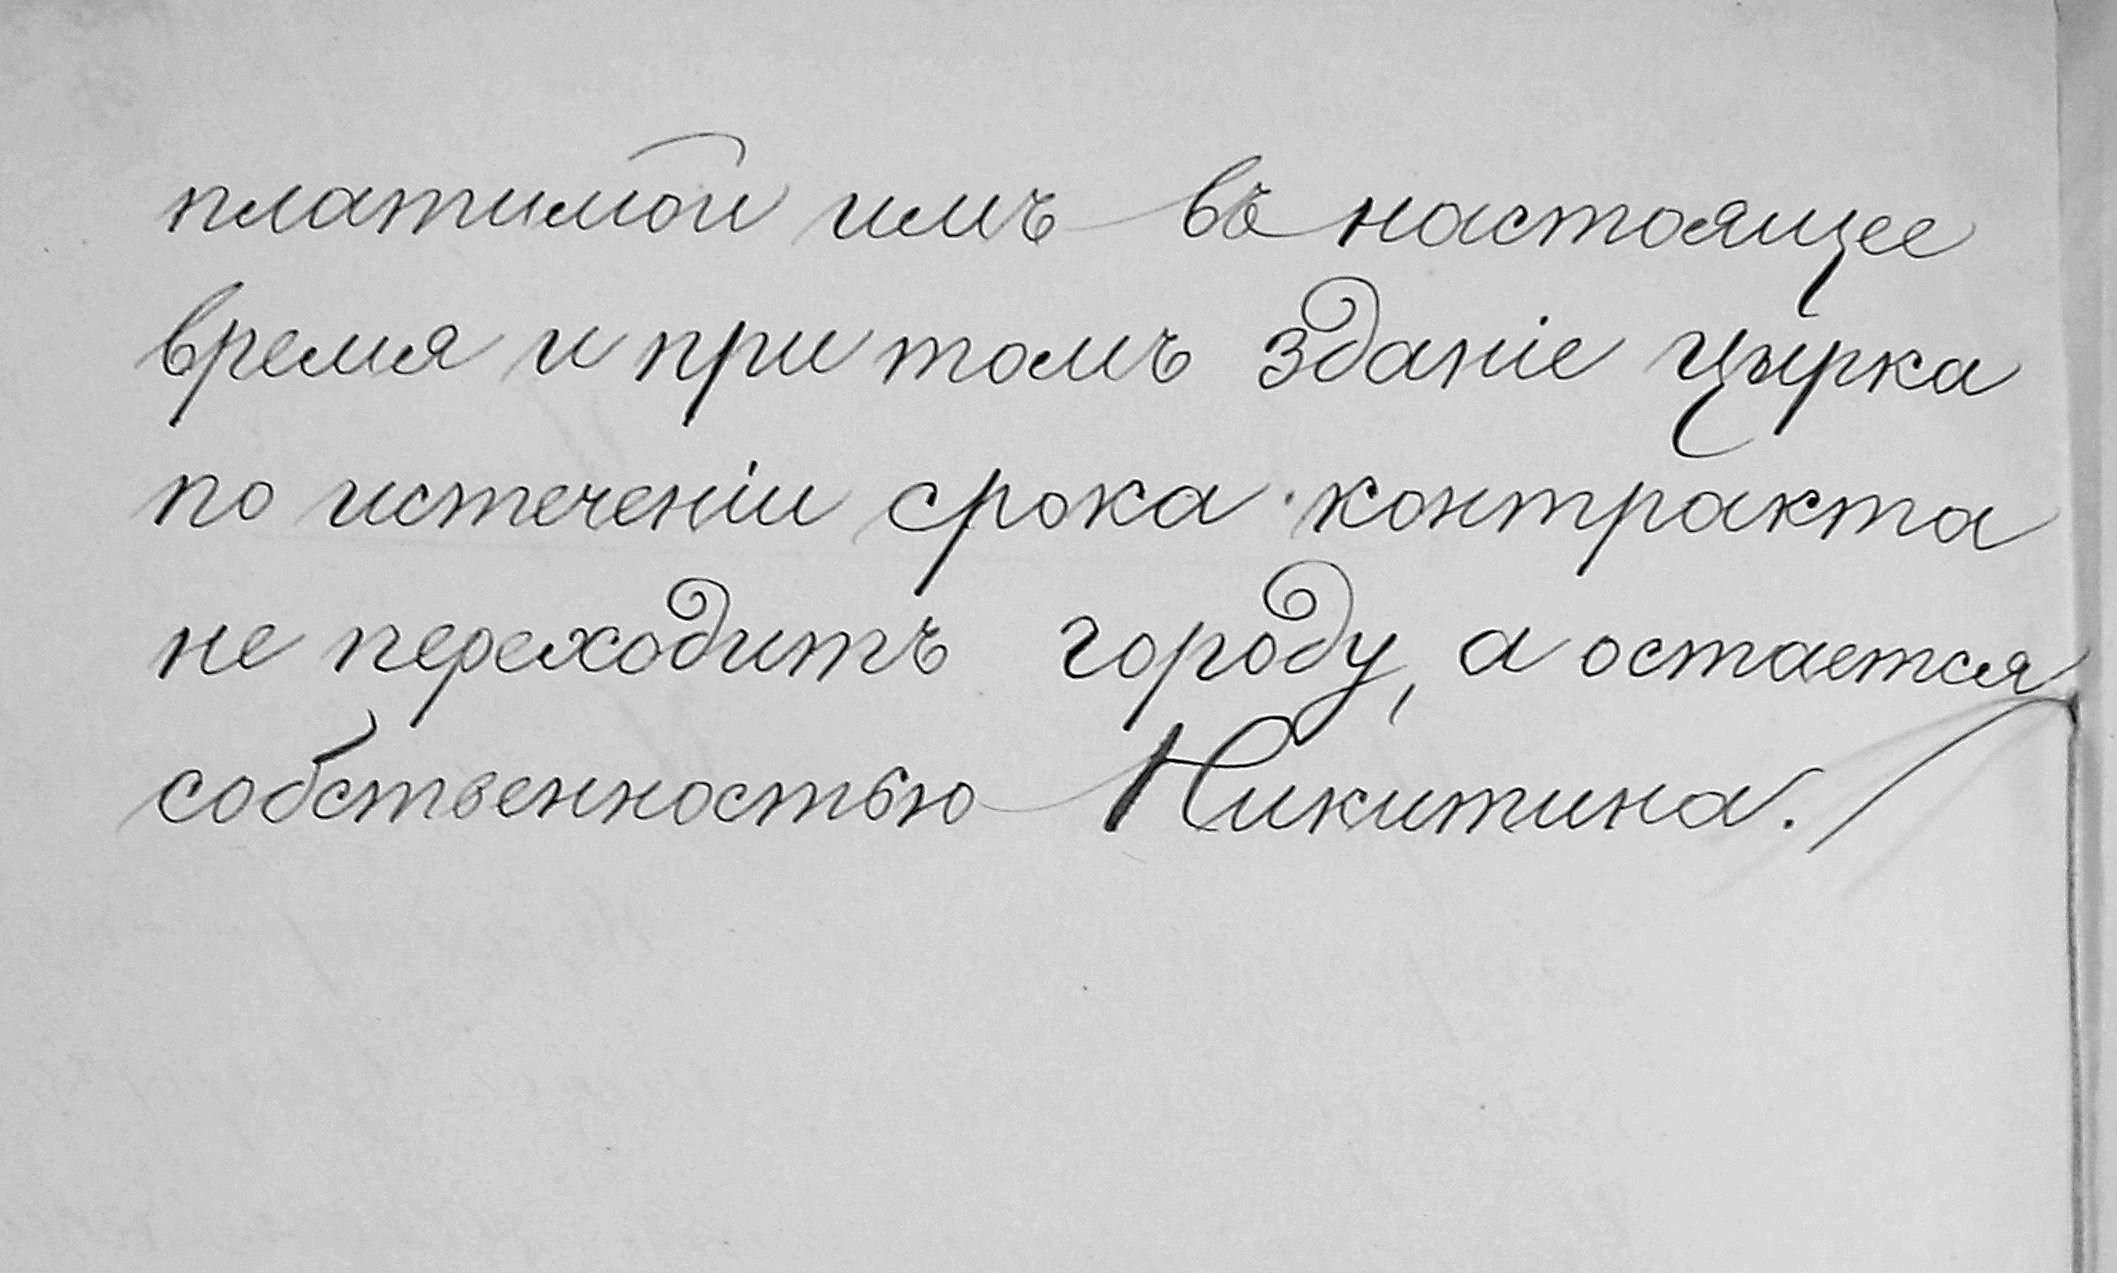 платимой имъ въ настоящее
время и при томъ зданіе цирка
по истеченіи срока контракта
не переходитъ городу, а остается
собственностью Никитина.